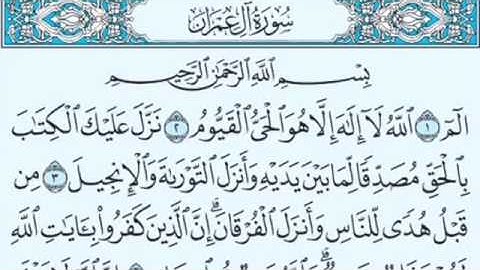 سُورَةُ آلِ عِمْرَانَ
بِسْمِ ٱللَّهِ ٱلرَّحْمَٰنِ ٱلرَّحِيمِ
الٓمٓ ١ ٱللَّهُ لَآ إِلَٰهَ إِلَّا هُوَ ٱلْحَىُّ ٱلْقَيُّومُ ٢ نَزَّلَ عَلَيْكَ ٱلْكِتَٰبَ
بِٱلْحَقِّ مُصَدِّقًا لِّمَا بَيْنَ يَدَيْهِ وَأَنزَلَ ٱلتَّوْرَىٰةَ وَٱلْإِنجِيلَ ٣ مِن
قَبْلُ هُدًى لِّلنَّاسِ وَأَنزَلَ ٱلْفُرْقَانَ ۗ إِنَّ ٱلَّذِينَ كَفَرُوا۟ بِـَٔايَٰتِ ٱللَّهِ